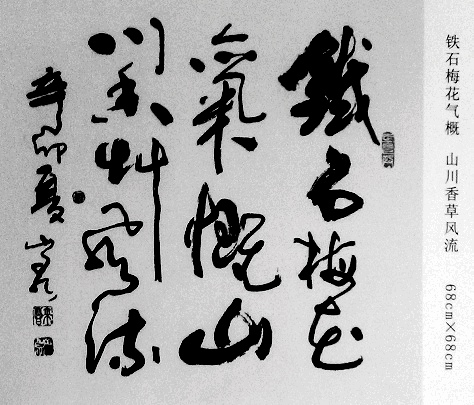 鐵石梅花
氣慨山
川香艸風流
辛卯夏
铁石梅花气概 山川香草风流 68cm×68cm